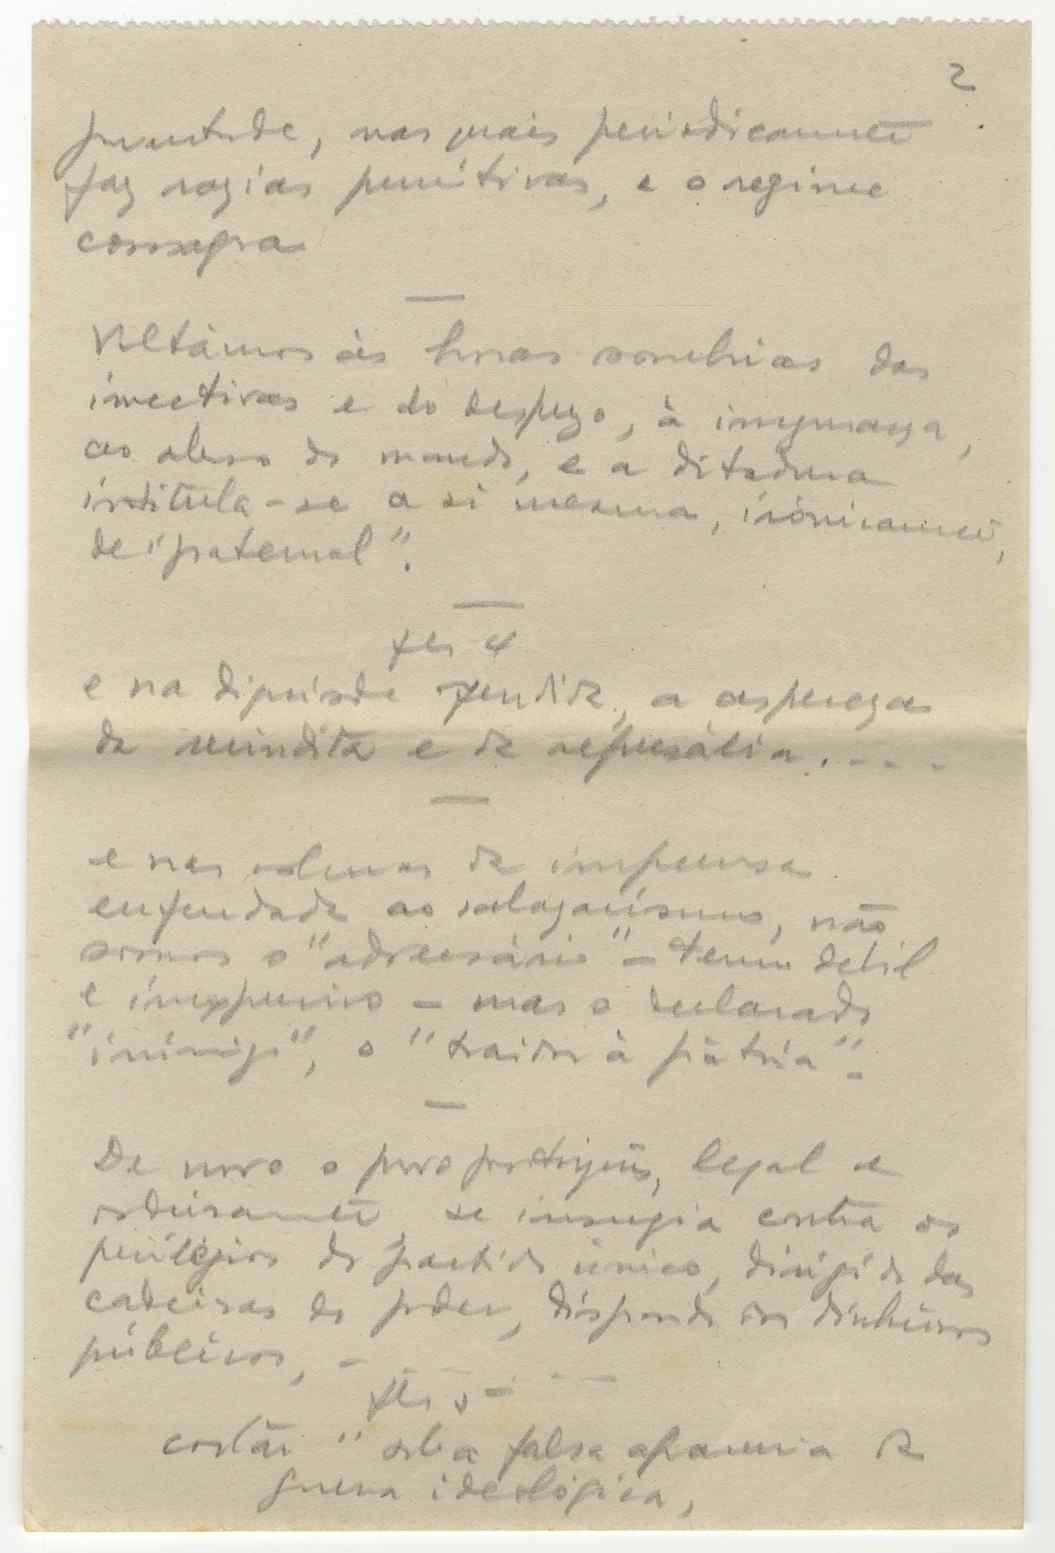 2
juventude, nas quais periodicamente
faz razias punitivas, e o regime
consagra
Voltámos às horas sombrias das
invectivas e do desprezo, à insegurança,
ao abuso do mando, e a ditadura
intitula-se a si mesma, ironicamente,
de "paternal".
fls 4
e na dignidade perdida, a aspereza
da vindita e da represália....
e nas colunas da imprensa
enfeudada ao salazarismo, não
somos o "adversário" – termo débil
e inexpressivo – mas o declarado
"inimigo", o "traidor à pátria".
De novo o povo português, legal e
ordeiramente se insurgia contra os
privilégios do partido único, dirigido das
cadeiras do poder, dispondo dos dinheiros
públicos, –
fls 5 –
cortar " sob a falsa aparência de
guerra ideológica,